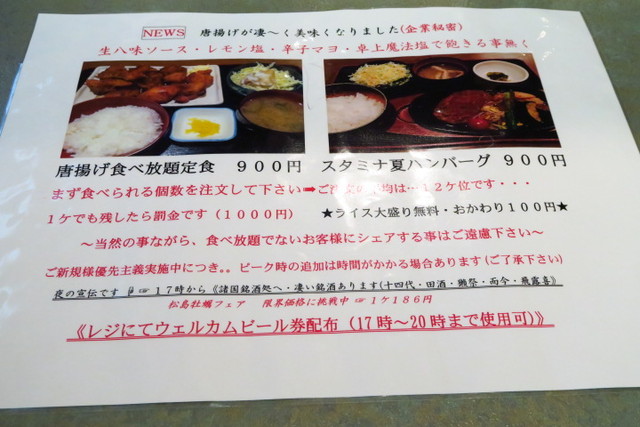 NEWS 唐揚げが凄～く美味くなりました(企業秘密)
生八味ソース・レモン塩・辛子マヨ・卓上魔法塩で飽きる事無く
唐揚げ食べ放題定食 ９００円 スタミナ夏ハンバーグ ９００円
まず食べられる個数を注文して下さい➡ご注文の平均は…１２ケ位です・・・
１ケでも残したら罰金です（１０００円） ★ライス大盛り無料・おかわり１００円★
～当然の事ながら、食べ放題でないお客様にシェアする事はご遠慮下さい～
ご新規様優先主義実施中につき。。ピーク時の追加は時間がかかる場合あります(ご了承下さい)
夜の宣伝です ☞１７時から《諸国銘酒処へ・凄い銘酒あります(十四代・田酒・獺祭・而今・飛露喜》
松島牡蠣フェア 限界価格に挑戦中☞１ケ１８６円
《レジにてウェルカムビール券配布（17時～20時まで使用可)》